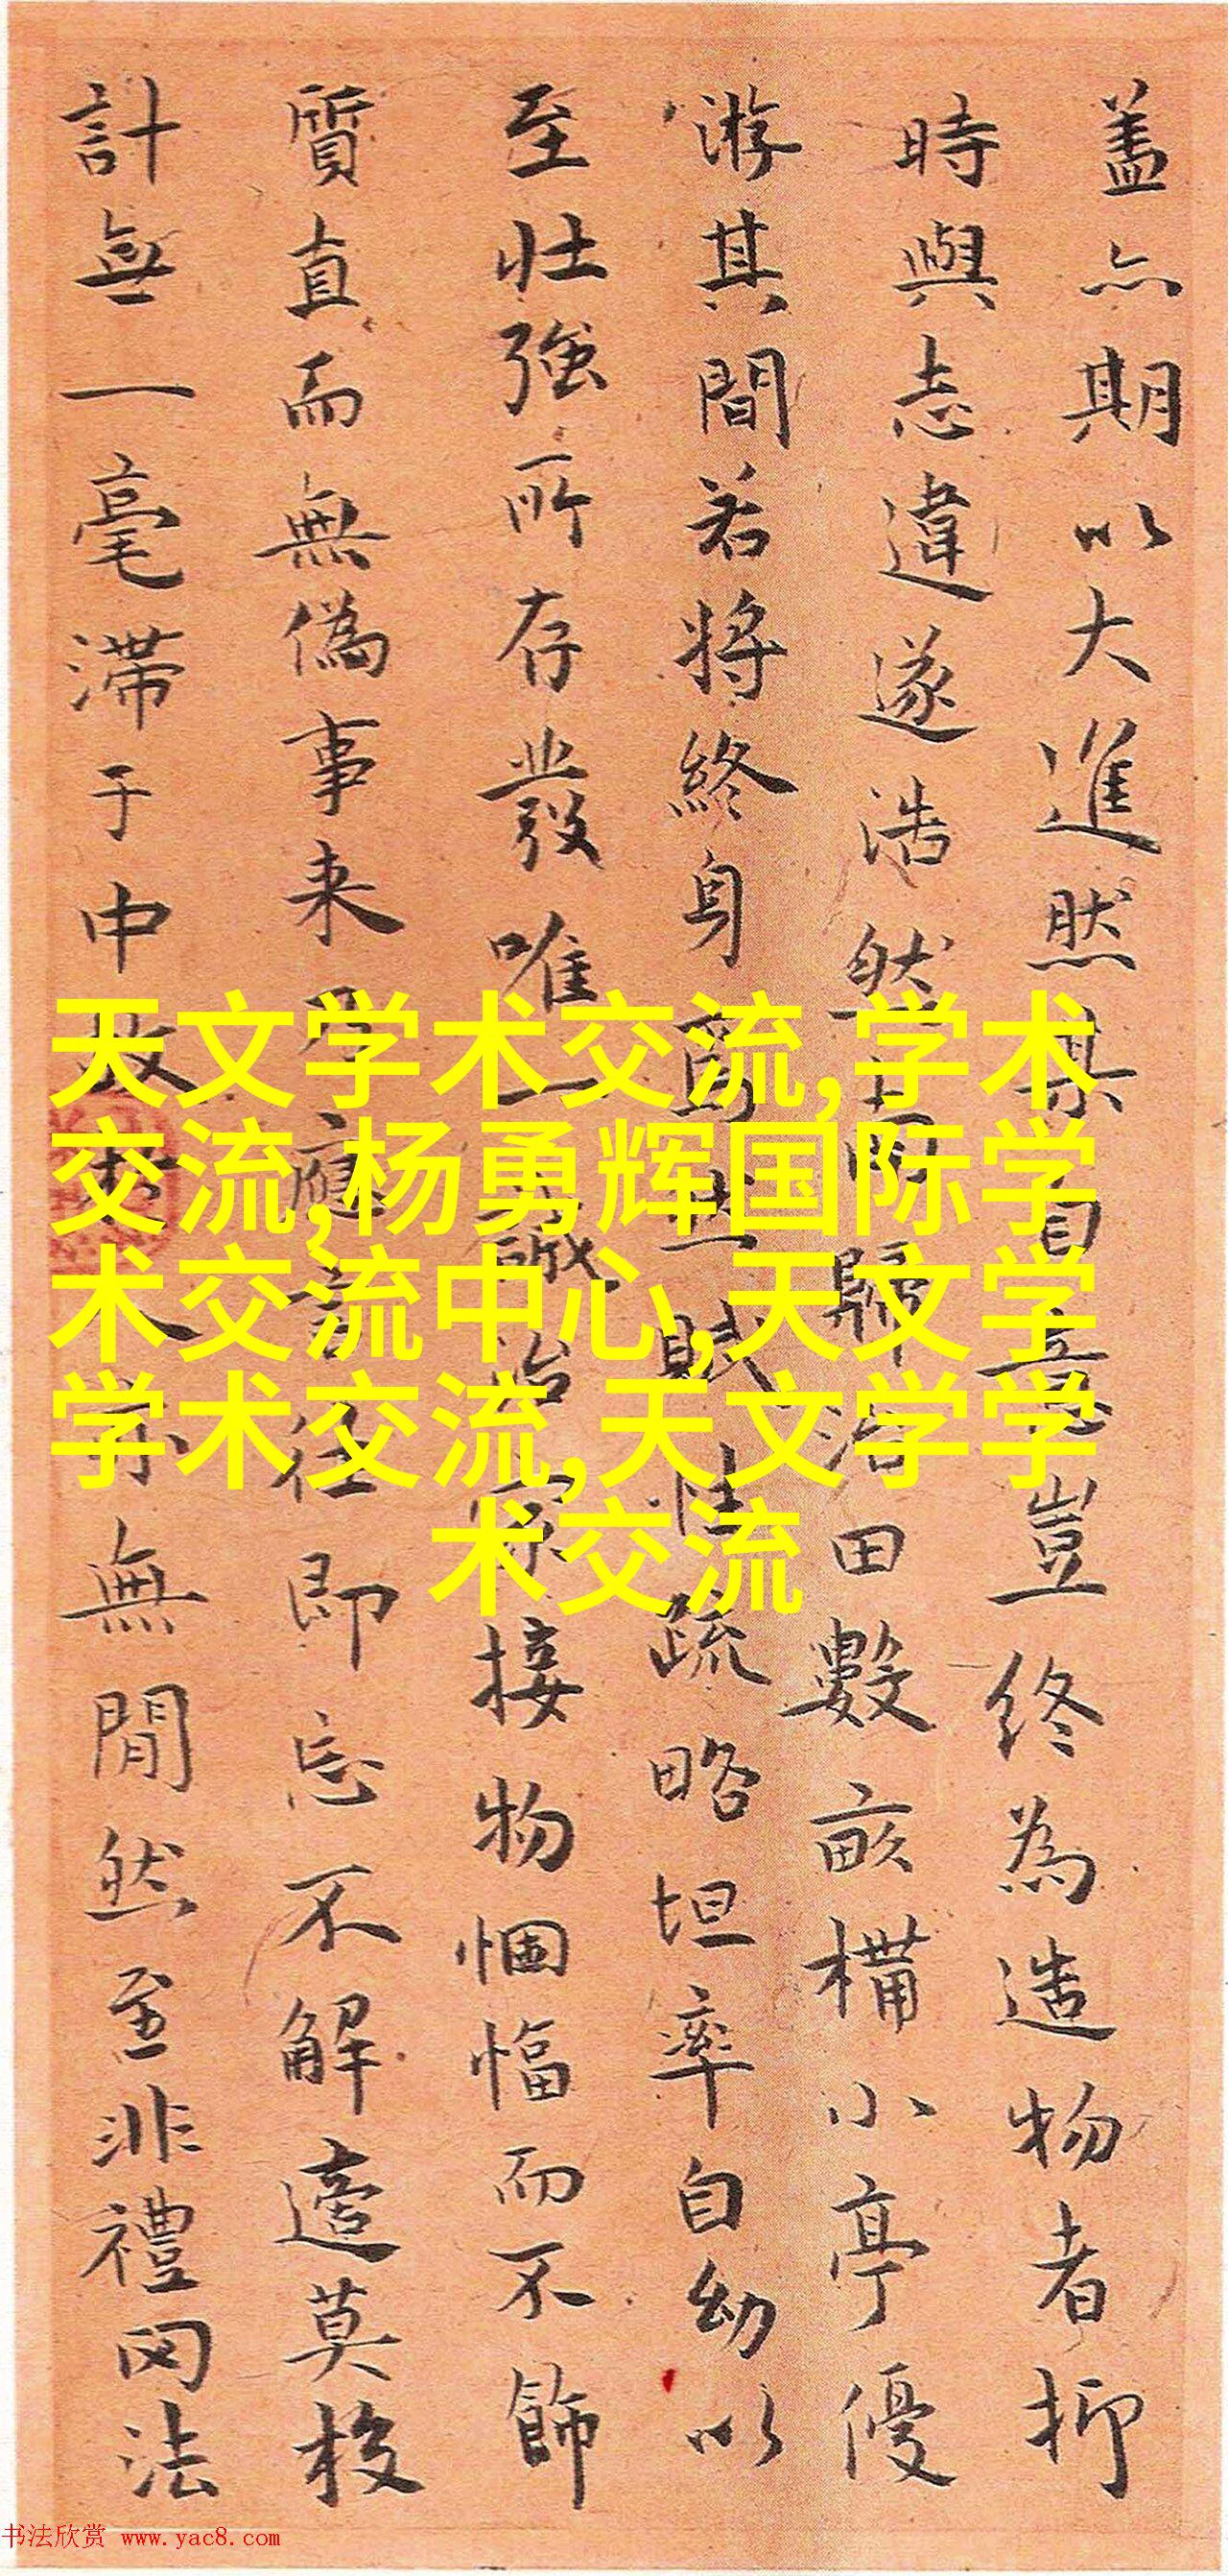 盖亦期以大進然其自豈終為造物者抑
時與志違遂浩然而歸治田數畝構小亭優
游其間若将終身焉然賦性疏略坦率自幼以
至壯強所存發唯一誠治家接物悃愊而不飾
質直而無偽事来應往即忘不解莫校
計無一毫滞于中故人亦無間然至非禮网法
天文学术交流,学术
交流,杨勇辉国际学
术交流中心,天文学
学术交流,天文学学
术交流
书法欣赏 www.yac8.com